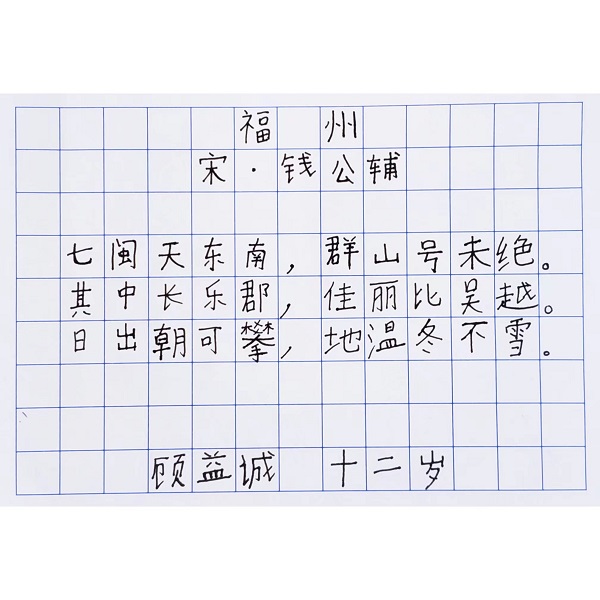 福 州
宋·钱公辅
七闽天东南，群山号未绝。
其中长乐郡，佳丽比吴越。
日出朝可攀，地温冬不雪。
顾益城 十二岁